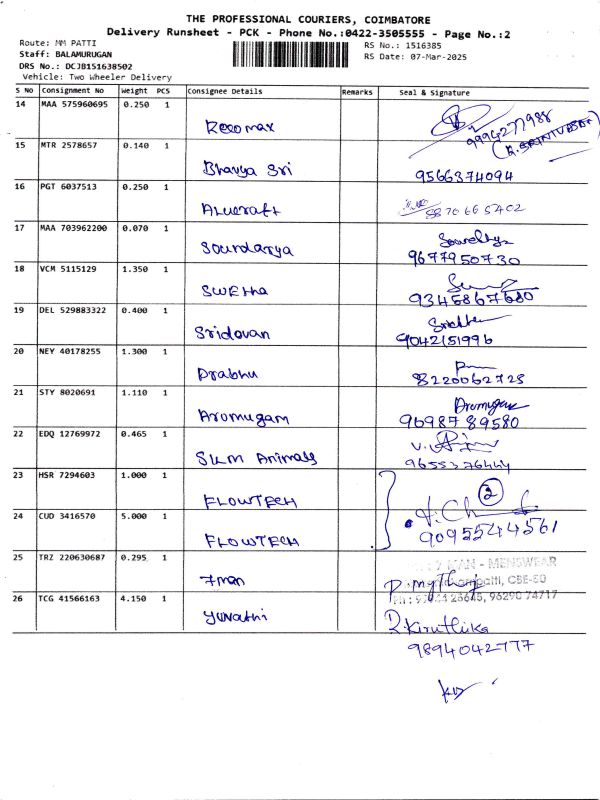 THE PROFESSIONAL COURIERS, COIMBATORE
Delivery Runsheet - PCK - Phone No.:0422-3505555 - Page No.:2
Route: MM PATTI
RS No.: 1516385
Staff: BALAMURUGAN
RS Date: 07-Mar-2025
DRS No.: DCJB151638502
Vehicle: Two Wheeler Delivery
S No Consignment No Weight PCS Consignee Details Remarks Seal & Signature
14 MAA 575960695 0.250 1
Recomax
9994277988
(R. SRINIVASAN)
15 MTR 2578657 0.140 1
Bhavya Sri 9566374094
16 PGT 6037513 0.250 1
Alucraft 8870665402
17 MAA 703962200 0.070 1
Soundarya
9677950730
18 VCM 5115129 1.350 1
Swetha
9345867680
19 DEL 529883322 0.400 1
Sridovan
9042151996
20 NEY 40178255 1.300 1
Prabhu
8220062725
21 STY 8020691 1.110 1
Arumugam
Arumugam
9698789580
22 EDQ 12769972 0.465 1
SKM Animals
9655376444
23 HSR 7294603 1.000 1
FLOWTECH
2
24 CUD 3416570 5.000 1
FLOWTECH
9095544561
25 TRZ 220630687 0.295 1
7man
MAN - MENSWEAR
CBE-60
96290 74717
26 TCG 41566163 4.150 1
Yuvathi
R. Kiruthika
9894042777